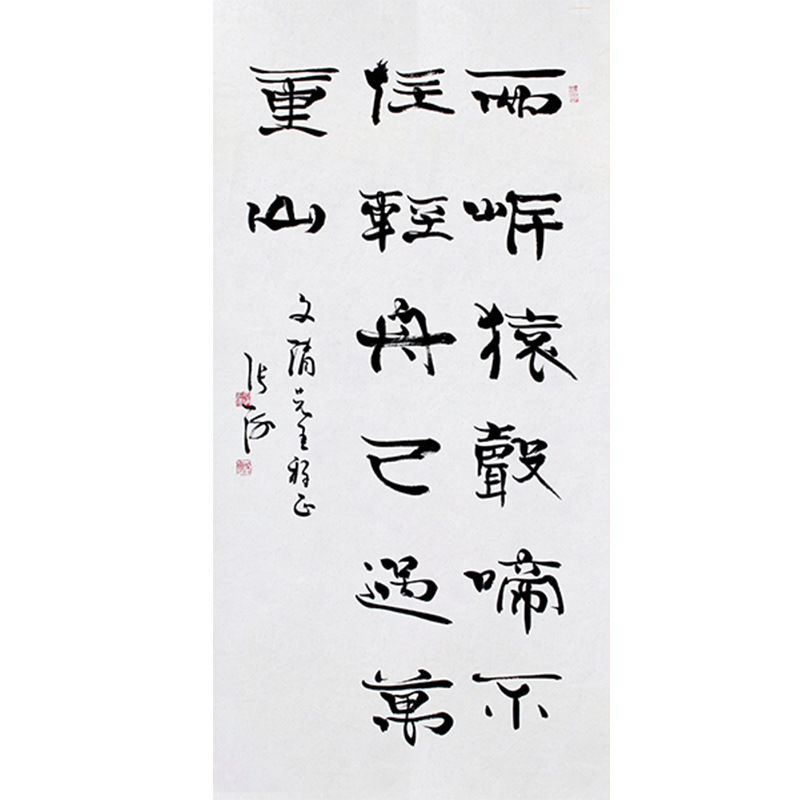 兩岸猿聲啼不
住輕舟已過萬
重山
文清先生雅正
張河